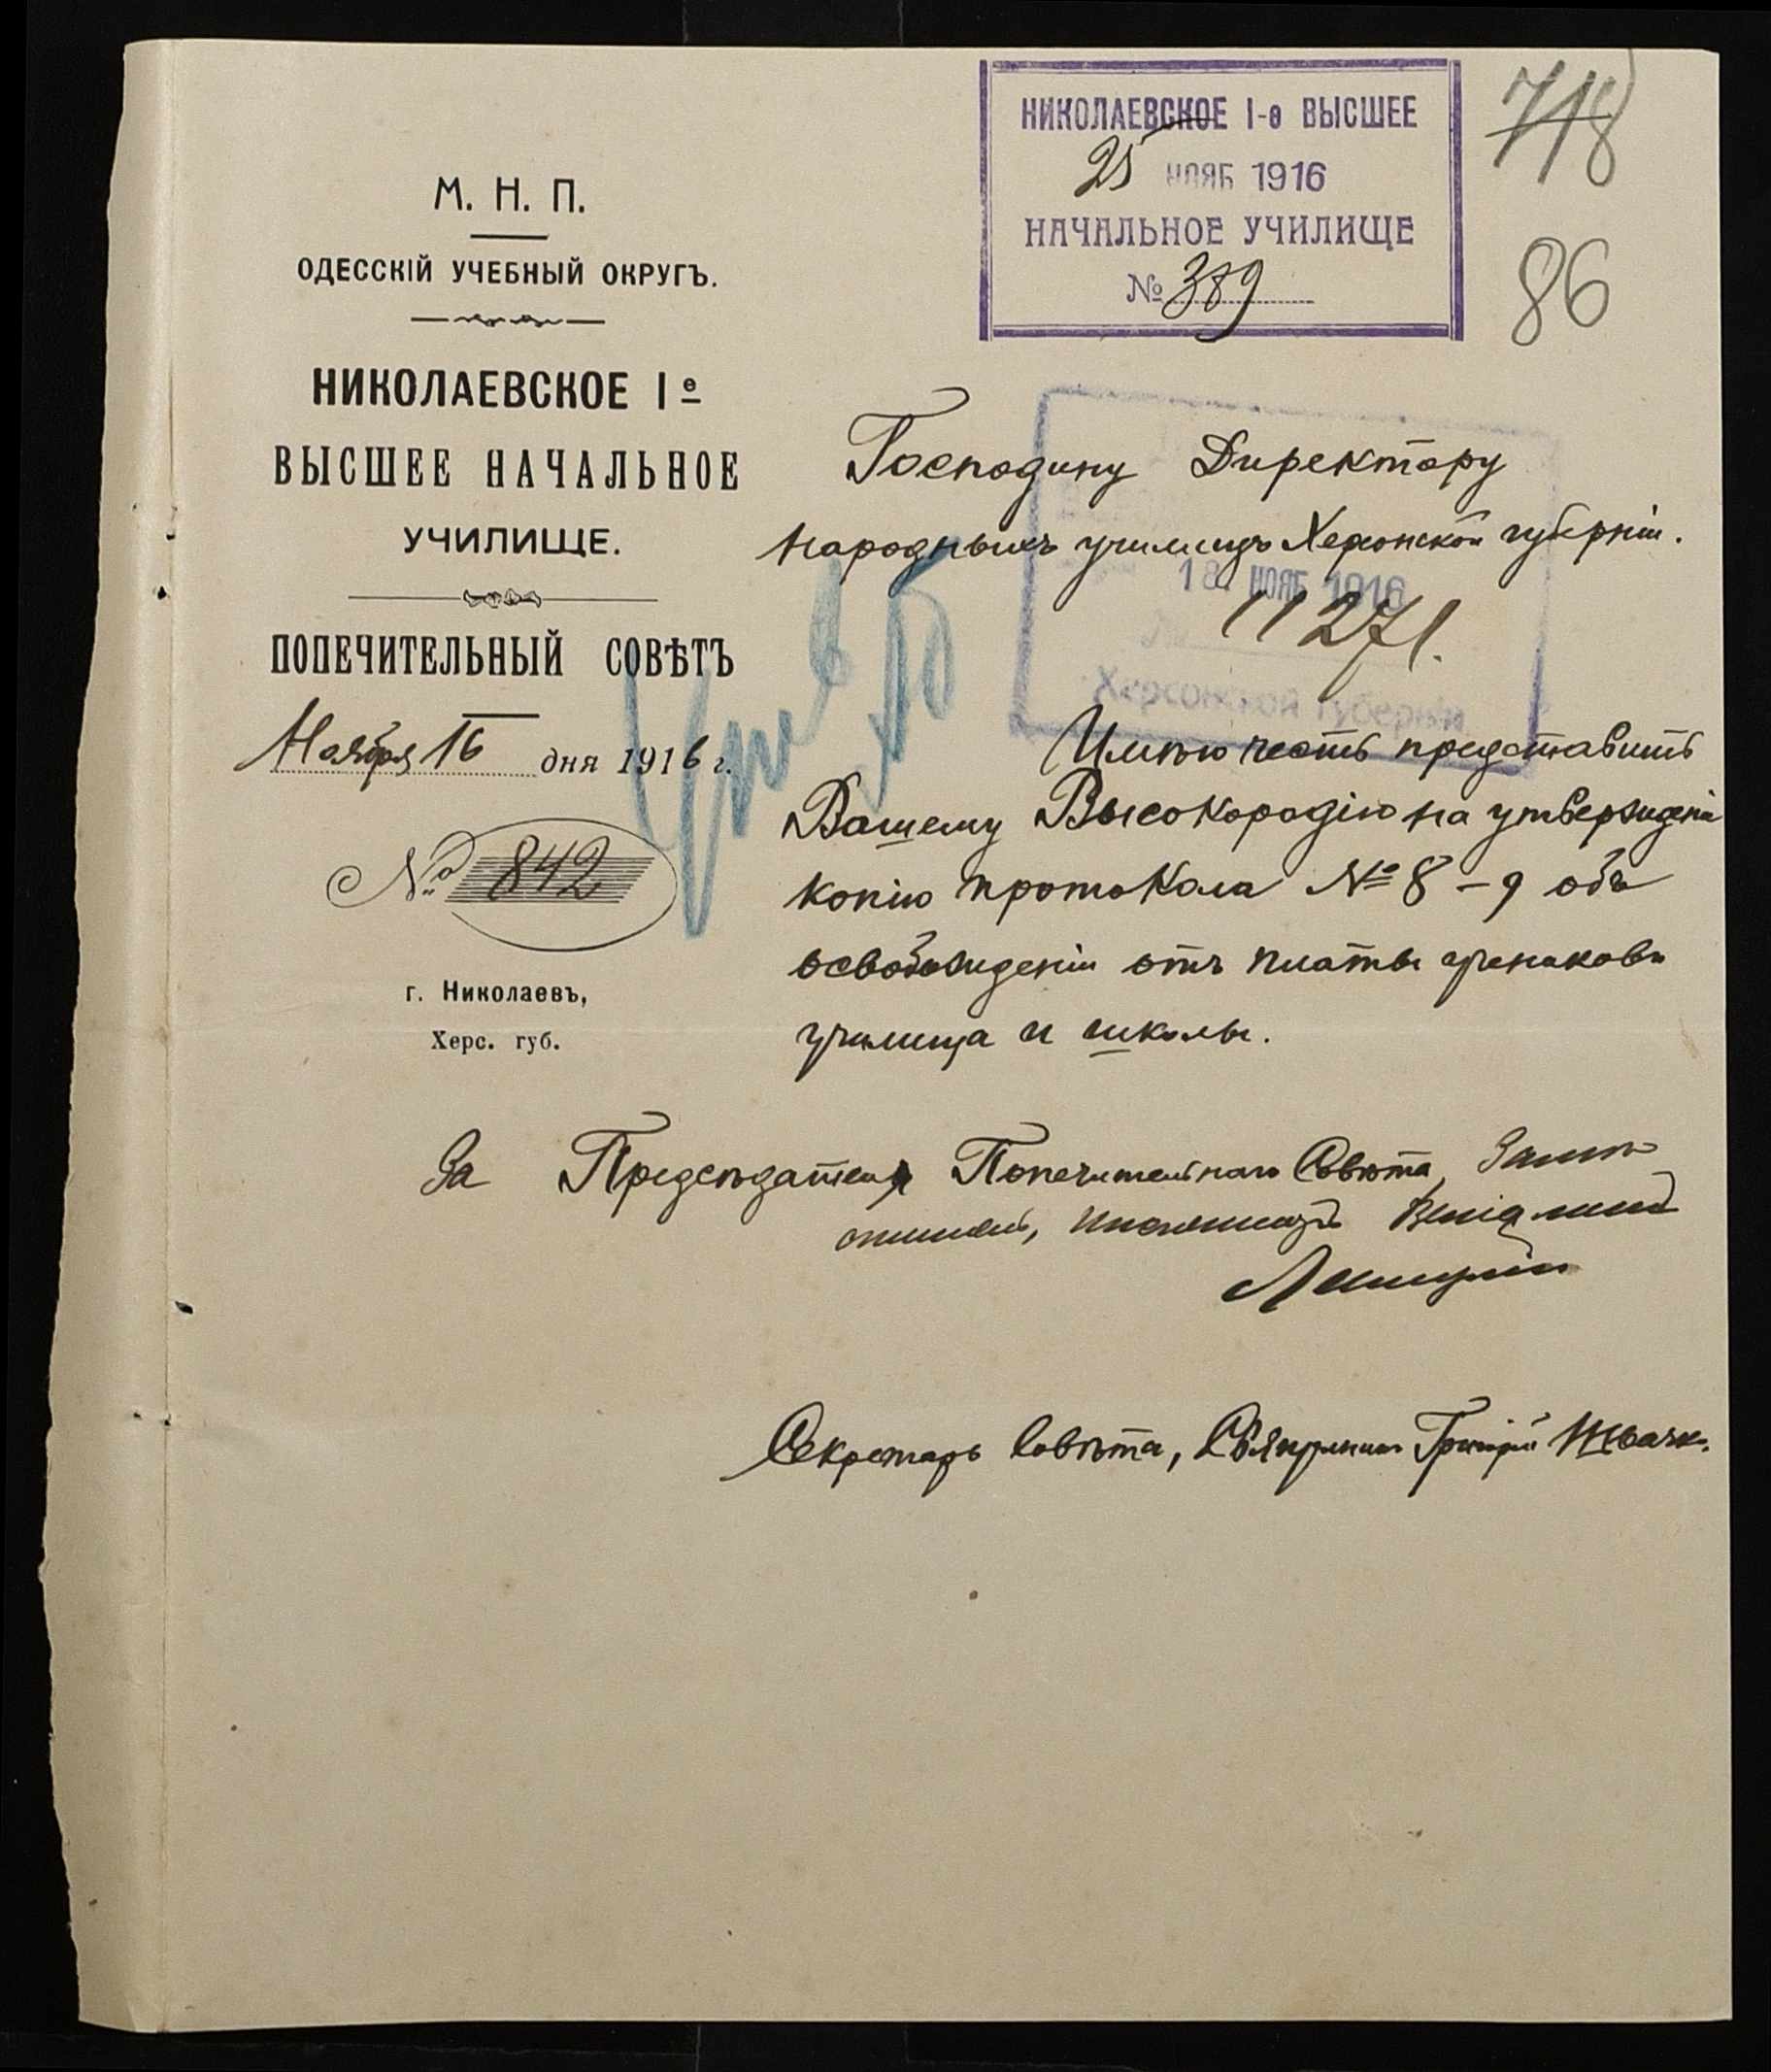 НИКОЛАЕВСКОЕ I-е ВЫСШЕЕ
25 НОЯБ 1916
НАЧАЛЬНОЕ УЧИЛИЩЕ
№ 389
718
86
М. Н. П.
ОДЕССКІЙ УЧЕБНЫЙ ОКРУГЪ.
НИКОЛАЕВСКОЕ Iе
ВЫСШЕЕ НАЧАЛЬНОЕ
УЧИЛИЩЕ.
ПОПЕЧИТЕЛЬНЫЙ СОВѢТЪ
Ноября 16 дня 1916 г.
№ 842
г. Николаевъ,
Херс. губ.
Господину Директору
народныхъ училищъ Херсонской губерніи.
18 НОЯБ 1916
11271.
Херсонской губерніи
Имѣю честь представить
Вашему Высокородію на утвержденіе
копію протокола № 8-9 объ
освобожденіи отъ платы учениковъ
училища и школы.
За Предсѣдателя Попечительнаго Совѣта,
Секретарь Совѣта, Священникъ Григорій